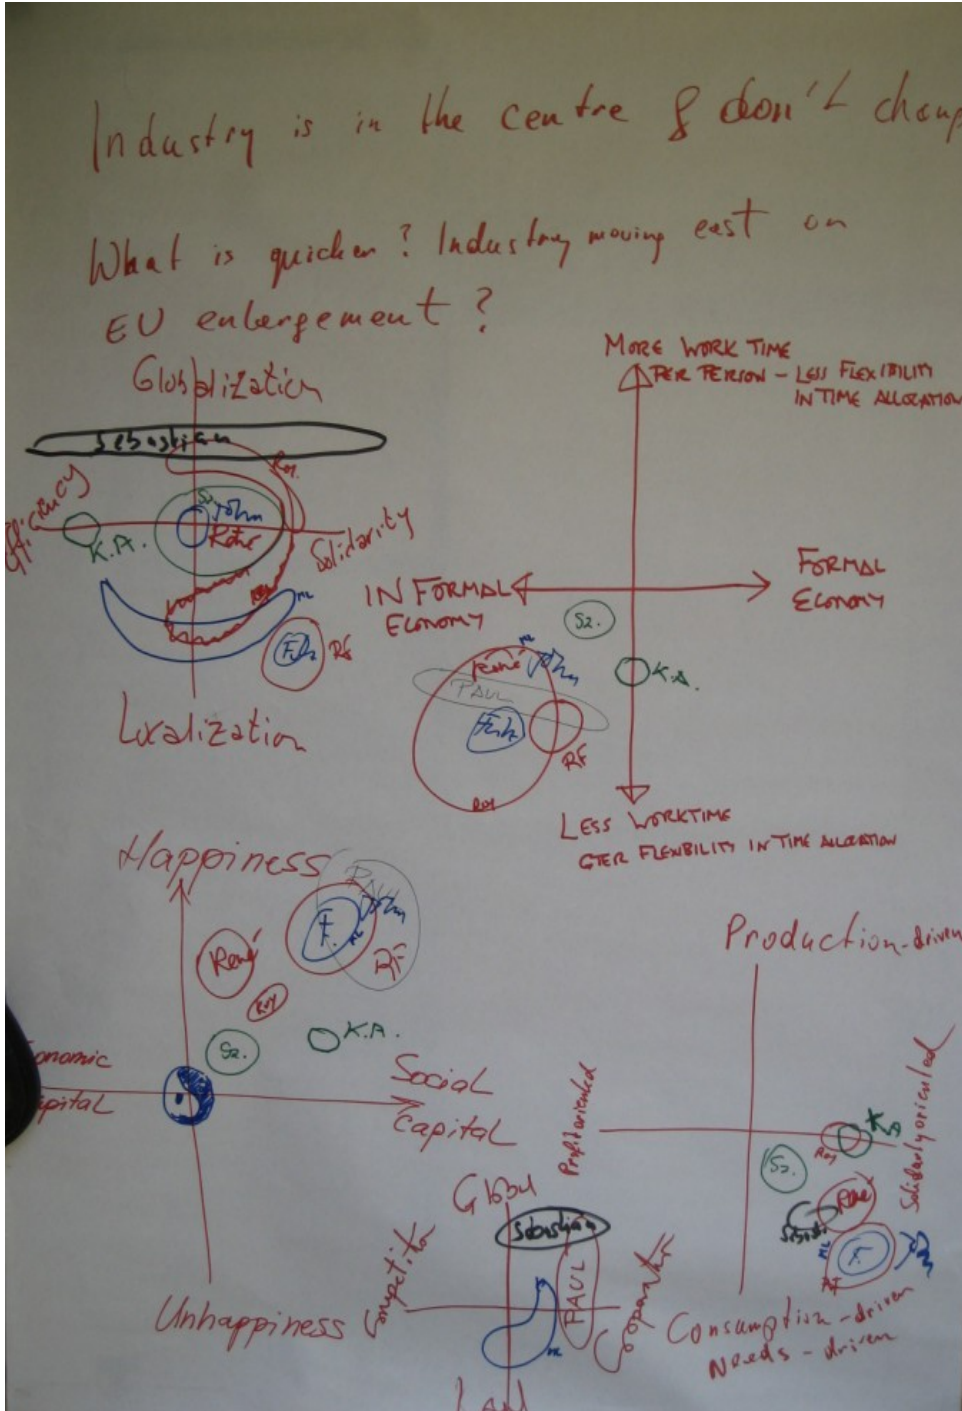 Industry is in the centre & don't
What is quicker? Industry moving east on
EU enlargement?
Globalization
Sebastian
Roy.
Sz.
John
René
K.A.
Solidarity
ML
RF
Localization
MORE WORK TIME
PER PERSON - LESS FLEXIBILITY
IN TIME ALLOCATION
IN FORMAL
ECONOMY
FORMAL
ECONOMY
Sz.
K.A.
René
John
ML
PAUL
RF
Roy
LESS WORKTIME
GTER FLEXIBILITY IN TIME ALLOCATION
Happiness
PAUL
John
F.
ML
RF
René
Roy
Sz.
K.A.
onomic
pital
Social
Capital
Unhappiness
Production-driven
Profitoriented
Solidarlyoriented
KA
Roy
Sz.
René
Sebasti
ML
F.
John
RF
Consumption-driven
Needs-driven
Global
Sebastian
PAUL
Competitio
Cooperatio
ML